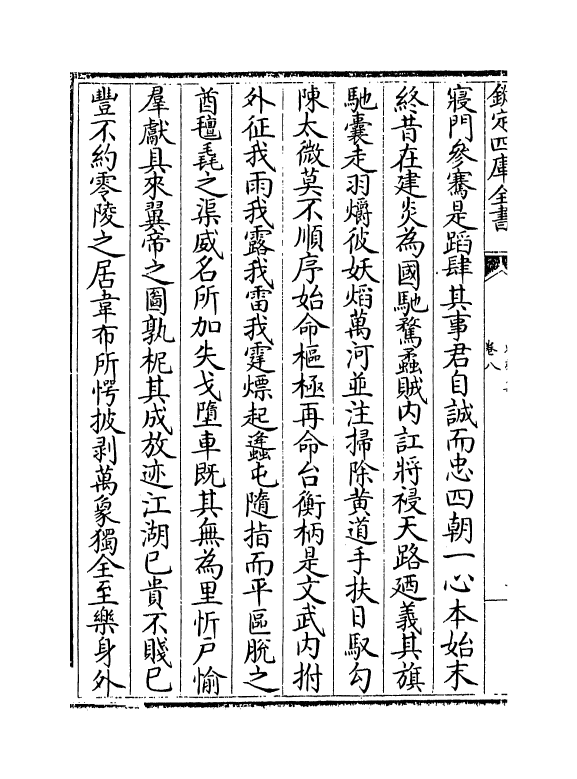 欽定四庫全書
卷八
寢門參騫是蹈肆其事君自誠而忠四朝一心本始末
終昔在建炎為國馳騖蟊賊内訌將祲天路廼義其旗
馳囊走羽爝彼妖熖萬河並注掃除黄道手扶日馭勾
陳太微莫不順序始命樞極再命台衡柄是文武内拊
外征我雨我露我雷我霆熛起蠭屯隨指而平區脱之
酋氊毳之渠威名所加失戈墮車既其無為里忻戸愉
羣獻具來翼帝之圖孰柅其成放迹江湖已貴不賤已
豐不約零陵之居韋布所愕披剥萬象獨全至樂身外